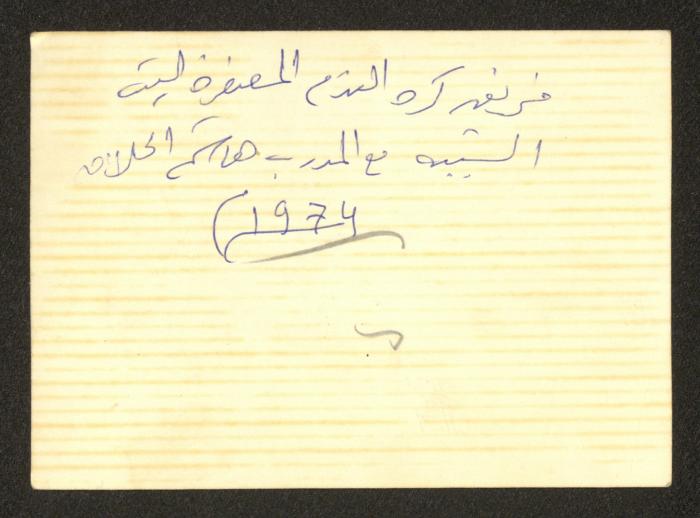 فريق كرة القدم المصغرة لبيت
الشبيبه مع المدرب هاشم الحلاق
1974